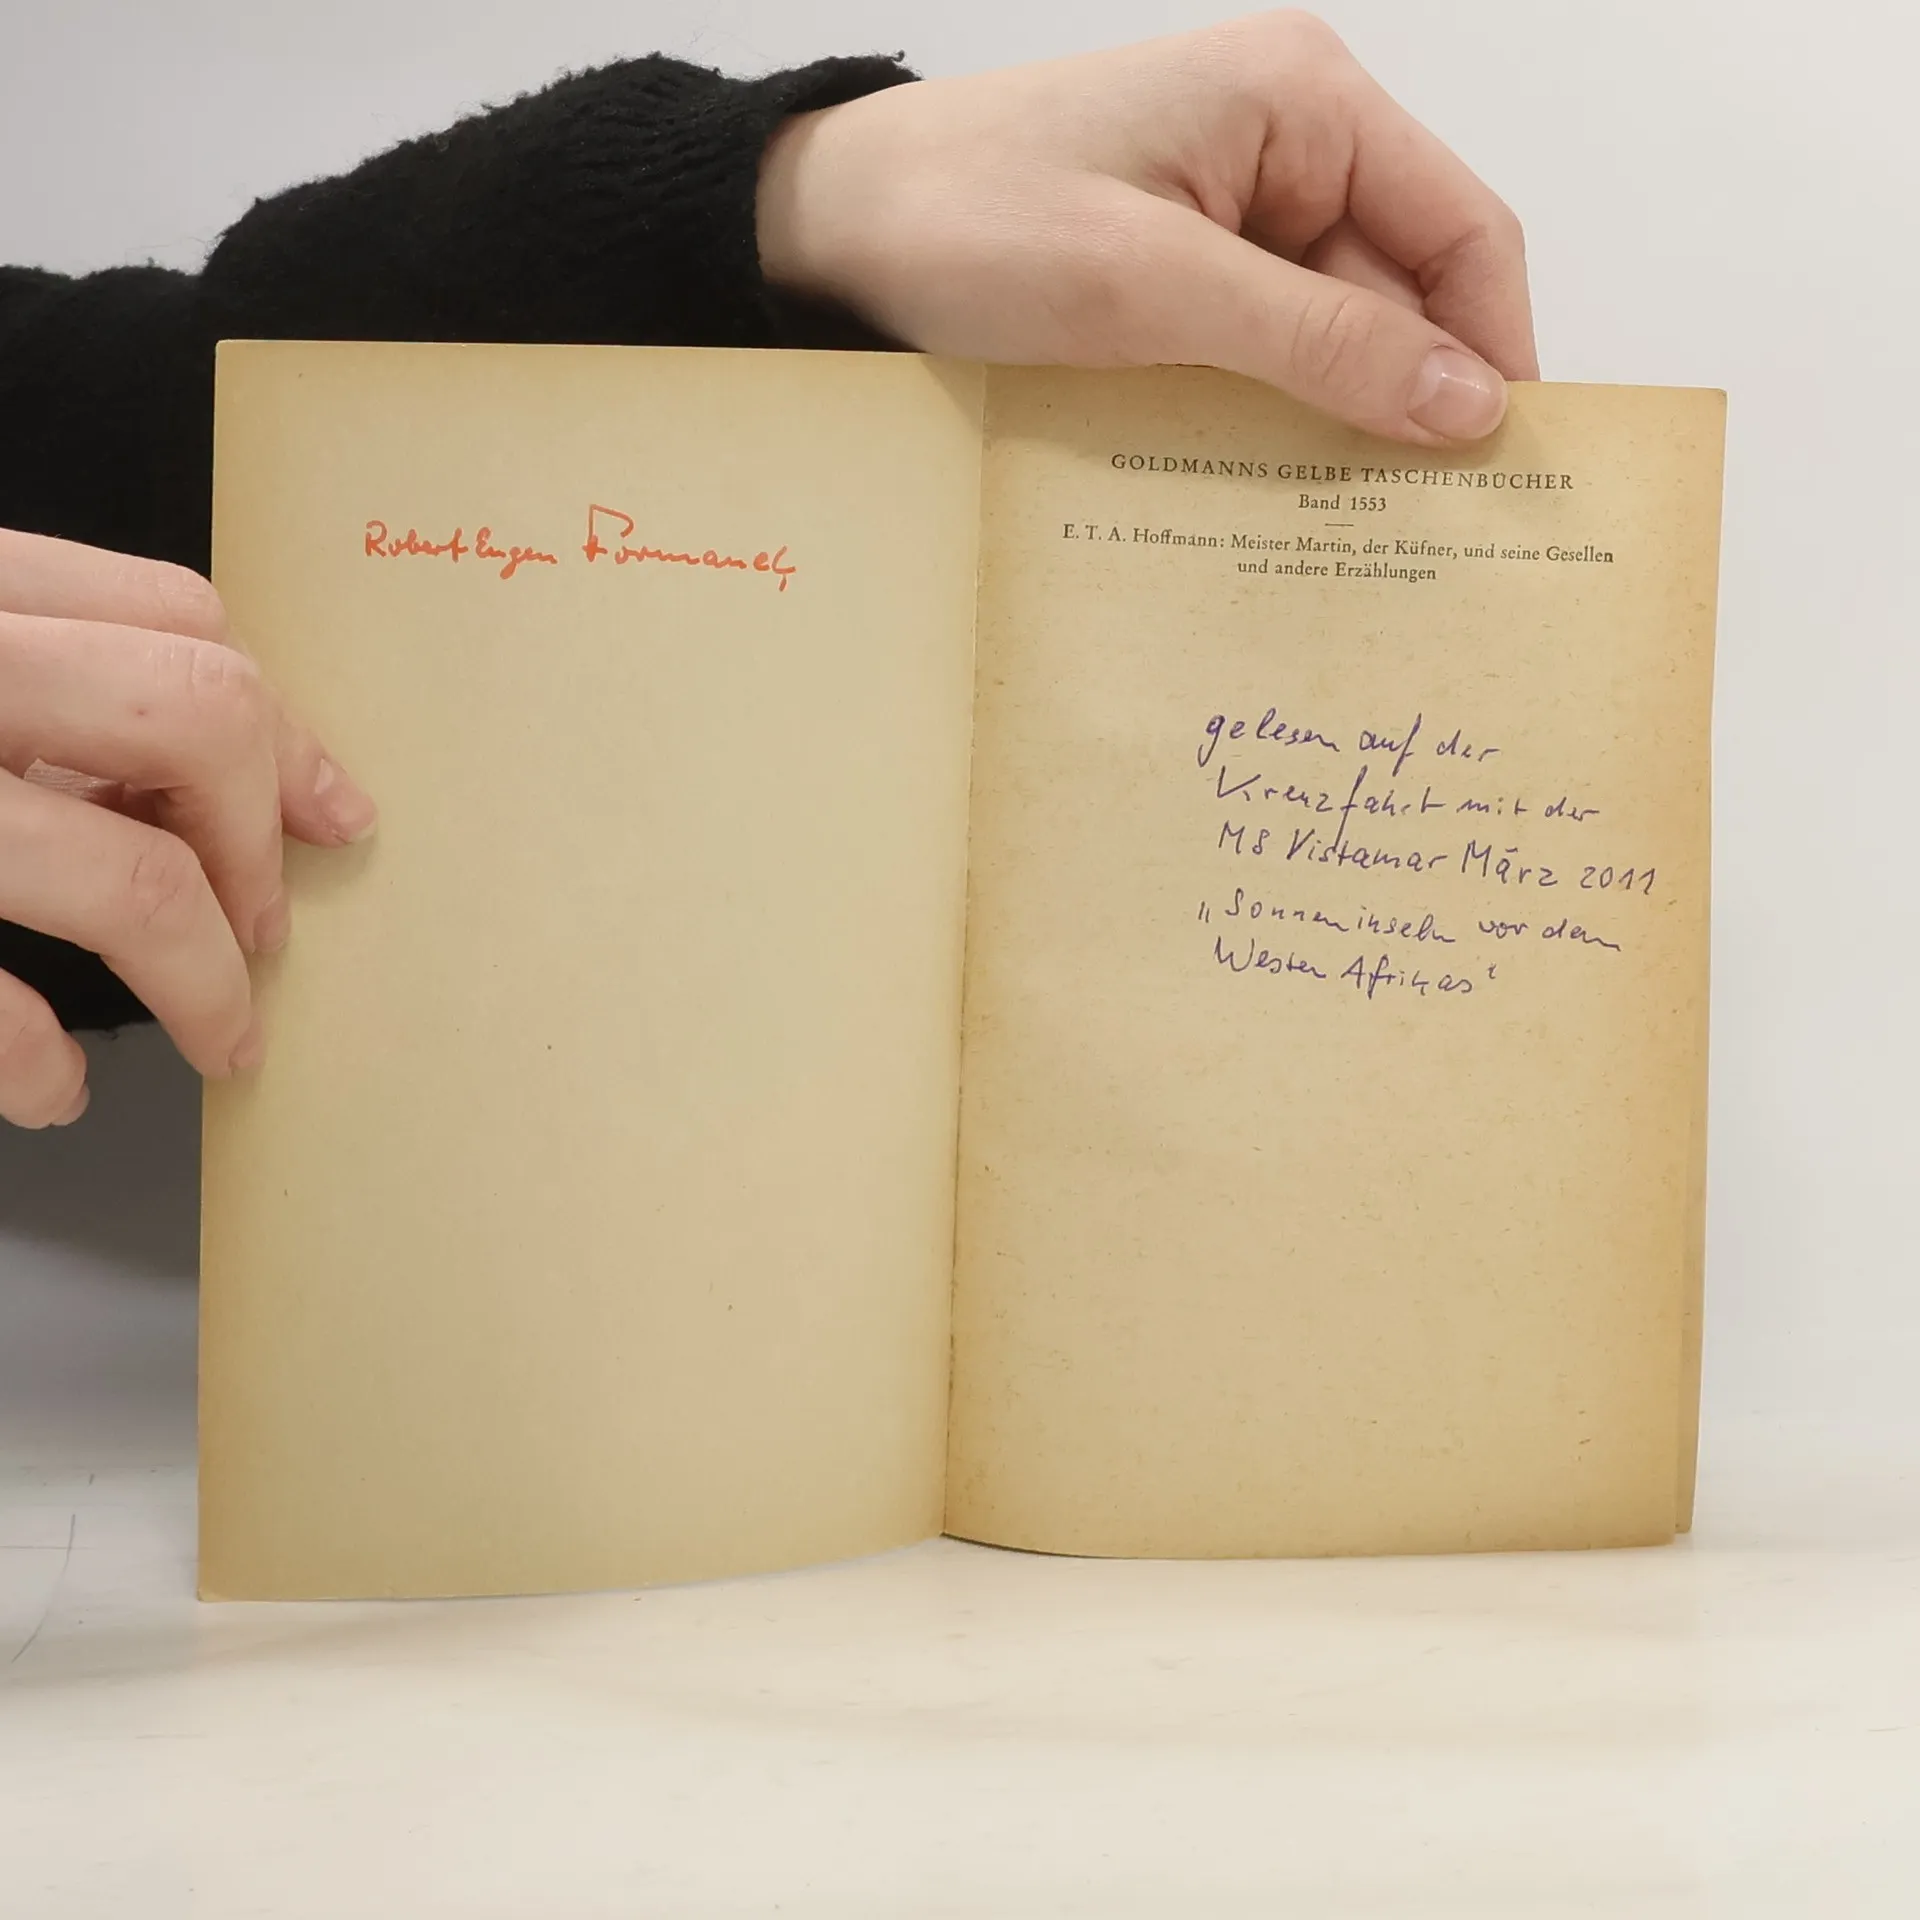 Robert Eugen Formanek
GOLDMANNS GELBE TASCHENBÜCHER
Band 1553
E. T. A. Hoffmann: Meister Martin, der Küfner, und seine Gesellen
und andere Erzählungen
gelesen auf der
Kreuzfahrt mit der
MS Vistamar März 2011
„Sonneninseln vor dem
Westen Afrikas“